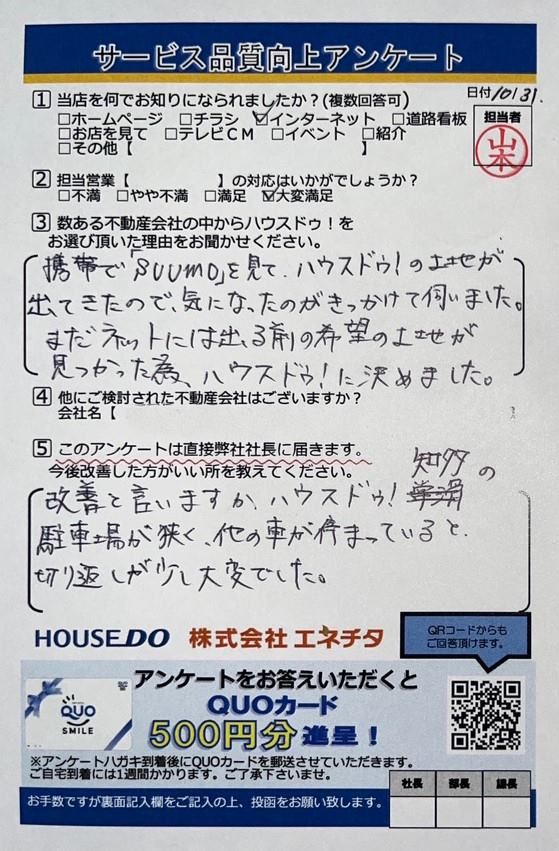 サービス品質向上アンケート
日付10/31.
1 当店を何でお知りになられましたか？(複数回答可)
□ホームページ □チラシ ☑インターネット □道路看板
□お店を見て □テレビCM □イベント □紹介
□その他【 】
担当者
山本
2 担当営業【 】の対応はいかがでしょうか？
□不満 □やや不満 □満足 ☑大変満足
3 数ある不動産会社の中からハウスドゥ！を
お選び頂いた理由をお聞かせください。
携帯で「SUUMO」を見て、ハウスドゥ！の土地が
出てきたので、気になったのがきっかけて伺いました。
まだネットには出る前の希望の土地が
見つかった為、ハウスドゥ！に決めました。
4 他にご検討された不動産会社はございますか？
会社名【
5 このアンケートは直接弊社社長に届きます。
今後改善した方がいい所を教えてください。
改善と言いますか、ハウスドゥ！ 知多の
駐車場が狭く、他の車が停まっていると、
切り返しが少し大変でした。
HOUSEDO 株式会社 エネチタ
QRコードからも
ご回答頂けます。
アンケートをお答えいただくと
QUOカード
500円分 進呈！
QUO
SMILE
※アンケートハガキ到着後にQUOカードを郵送させていただきます。
ご自宅到着には1週間かかります。ご了承下さいませ。
社長 部長 課長
お手数ですが裏面記入欄をご記入の上、投函をお願い致します。